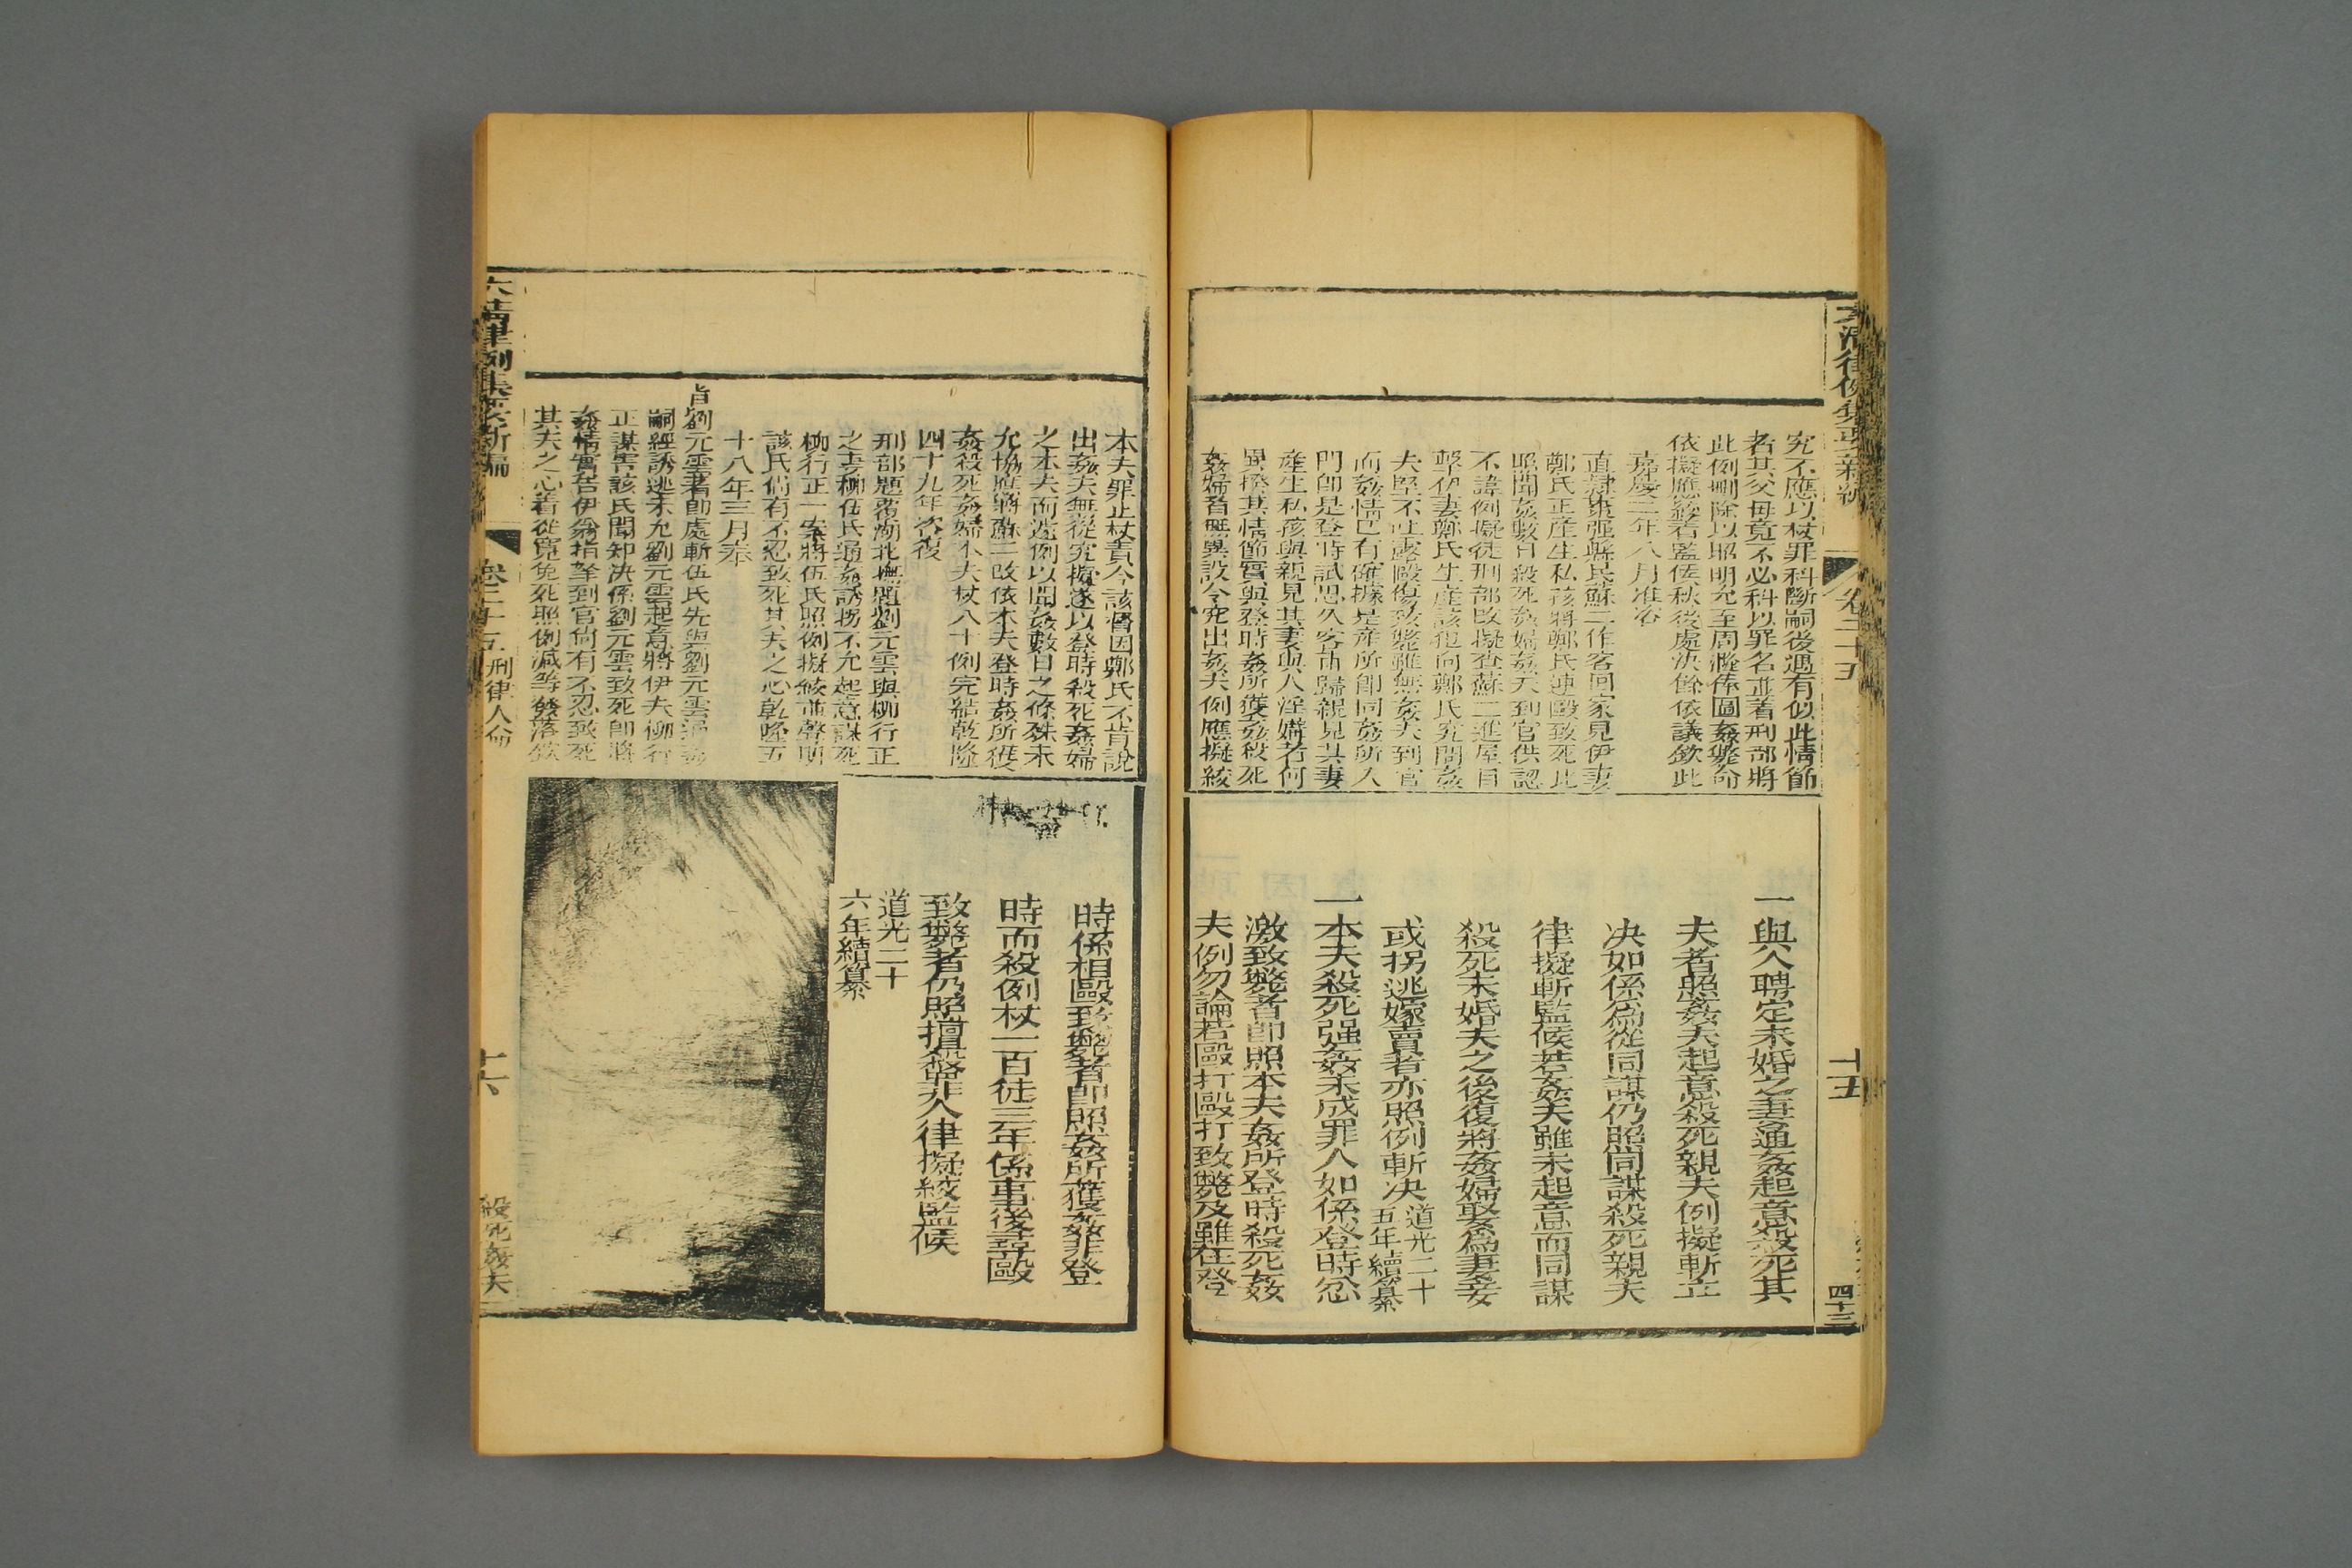 大清律例集要新編
卷二十五
十五
四十三
究不應以杖罪科斷嗣後遇有似此情節
者其父母竟不必科以罪名並著刑部將
此例刪除以昭明允至周隆俸圖姦斃命
依擬應絞著監候秋後處決餘依議欽此
嘉慶二年八月准咨
直隸棗强縣民蘇二作客回家見伊妻
鄭氏正產生私孩將鄭氏連毆致死比
照聞姦數日殺死姦婦姦夫到官供認
不諱例擬徒刑部改擬查蘇二進屋目
擊伊妻鄭氏生產該犯向鄭氏究問姦
夫堅不吐露毆傷致斃雖無姦夫到官
而姦情已有確據是產所即同姦所入
門即是登時試思久客甫歸親見其妻
產生私孩與親見其妻與人淫媾者何
異揆其情節實與登時姦所獲姦殺死
姦婦者無異設令究出姦夫例應擬絞
一與人聘定未婚之妻通姦起意殺死其
夫者照姦夫起意殺死親夫例擬斬立
决如係爲從同謀仍照同謀殺死親夫
律擬斬監候若姦夫雖未起意而同謀
殺死未婚夫之後復將姦婦娶爲妻妾
或拐逃嫁賣者亦照例斬决道光二十
五年續纂
一本夫殺死强姦未成罪人如係登時忿
激致斃者即照本夫姦所登時殺死姦
夫例勿論若毆打毆打致斃及雖在登
本夫罪止杖責今該督因鄭氏不肯說
出姦夫無從究擬遂以登時殺死姦婦
之本夫而遽例以聞姦數日之條殊未
允協應將蘇二改依本夫登時姦所獲
姦殺死姦婦本夫杖八十例完結乾隆
四十九年咨覆
刑部題覆湖北撫題劉元雲與柳行正
之妻柳伍氏通姦誘拐不允起意謀死
柳行正一案將伍氏照例擬絞並聲明
該氏尚有不忍致死其夫之心乾隆五
十八年三月奉
旨劉元雲著即處斬伍氏先與劉元雲通姦
嗣經誘逃未允劉元雲起意將伊夫柳行
正謀害該氏聞知决係劉元雲致死即將
姦情實告伊翁指拏到官尚有不忍致死
其夫之心著從寬免死照例減等發落欽
時係相毆致斃者即照姦所獲姦非登
時而殺例杖一百徒三年係事後尋毆
致斃者仍照擅殺罪人律擬絞監候
道光二十
六年續纂
大清律例集要新編
卷二十五
刑律人命
十六
殺死姦夫